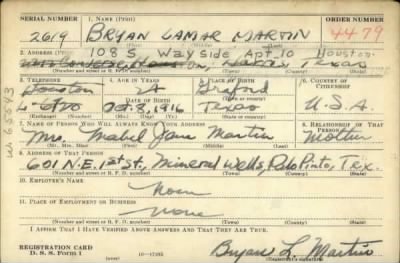 SERIAL NUMBER 1. NAME (Print) ORDER NUMBER
2619 BRYAN LAMAR MARTIN 4479
108 S. Wayside Apt. 10 Houston
2. ADDRESS (Print)
Harris, Texas
(Town) (County) (State)
3. TELEPHONE 4. AGE IN YEARS 5. PLACE OF BIRTH 6. COUNTRY OF CITIZENSHIP
Houston 24 Graford
DATE OF BIRTH
Oct. 8, 1916 Texas U.S.A.
(Mo.) (Day) (Yr.) (State or country)
7. NAME OF PERSON WHO WILL ALWAYS KNOW YOUR ADDRESS 8. RELATIONSHIP OF THAT PERSON
Mrs. Mabel Jane Martin Mother
(Mr., Mrs., Miss) (First) (Middle) (Last)
9. ADDRESS OF THAT PERSON
601 N.E. 1st St., Mineral Wells, Palo Pinto, Tex.
(Number and street or R. F. D. number) (Town) (County) (State)
10. EMPLOYER'S NAME
None
11. PLACE OF EMPLOYMENT OR BUSINESS
None
(Number and street or R. F. D. number) (Town) (County) (State)
I AFFIRM THAT I HAVE VERIFIED ABOVE ANSWERS AND THAT THEY ARE TRUE.
REGISTRATION CARD
D. S. S. Form 1 (over) 16—17105 Bryan L. Martin